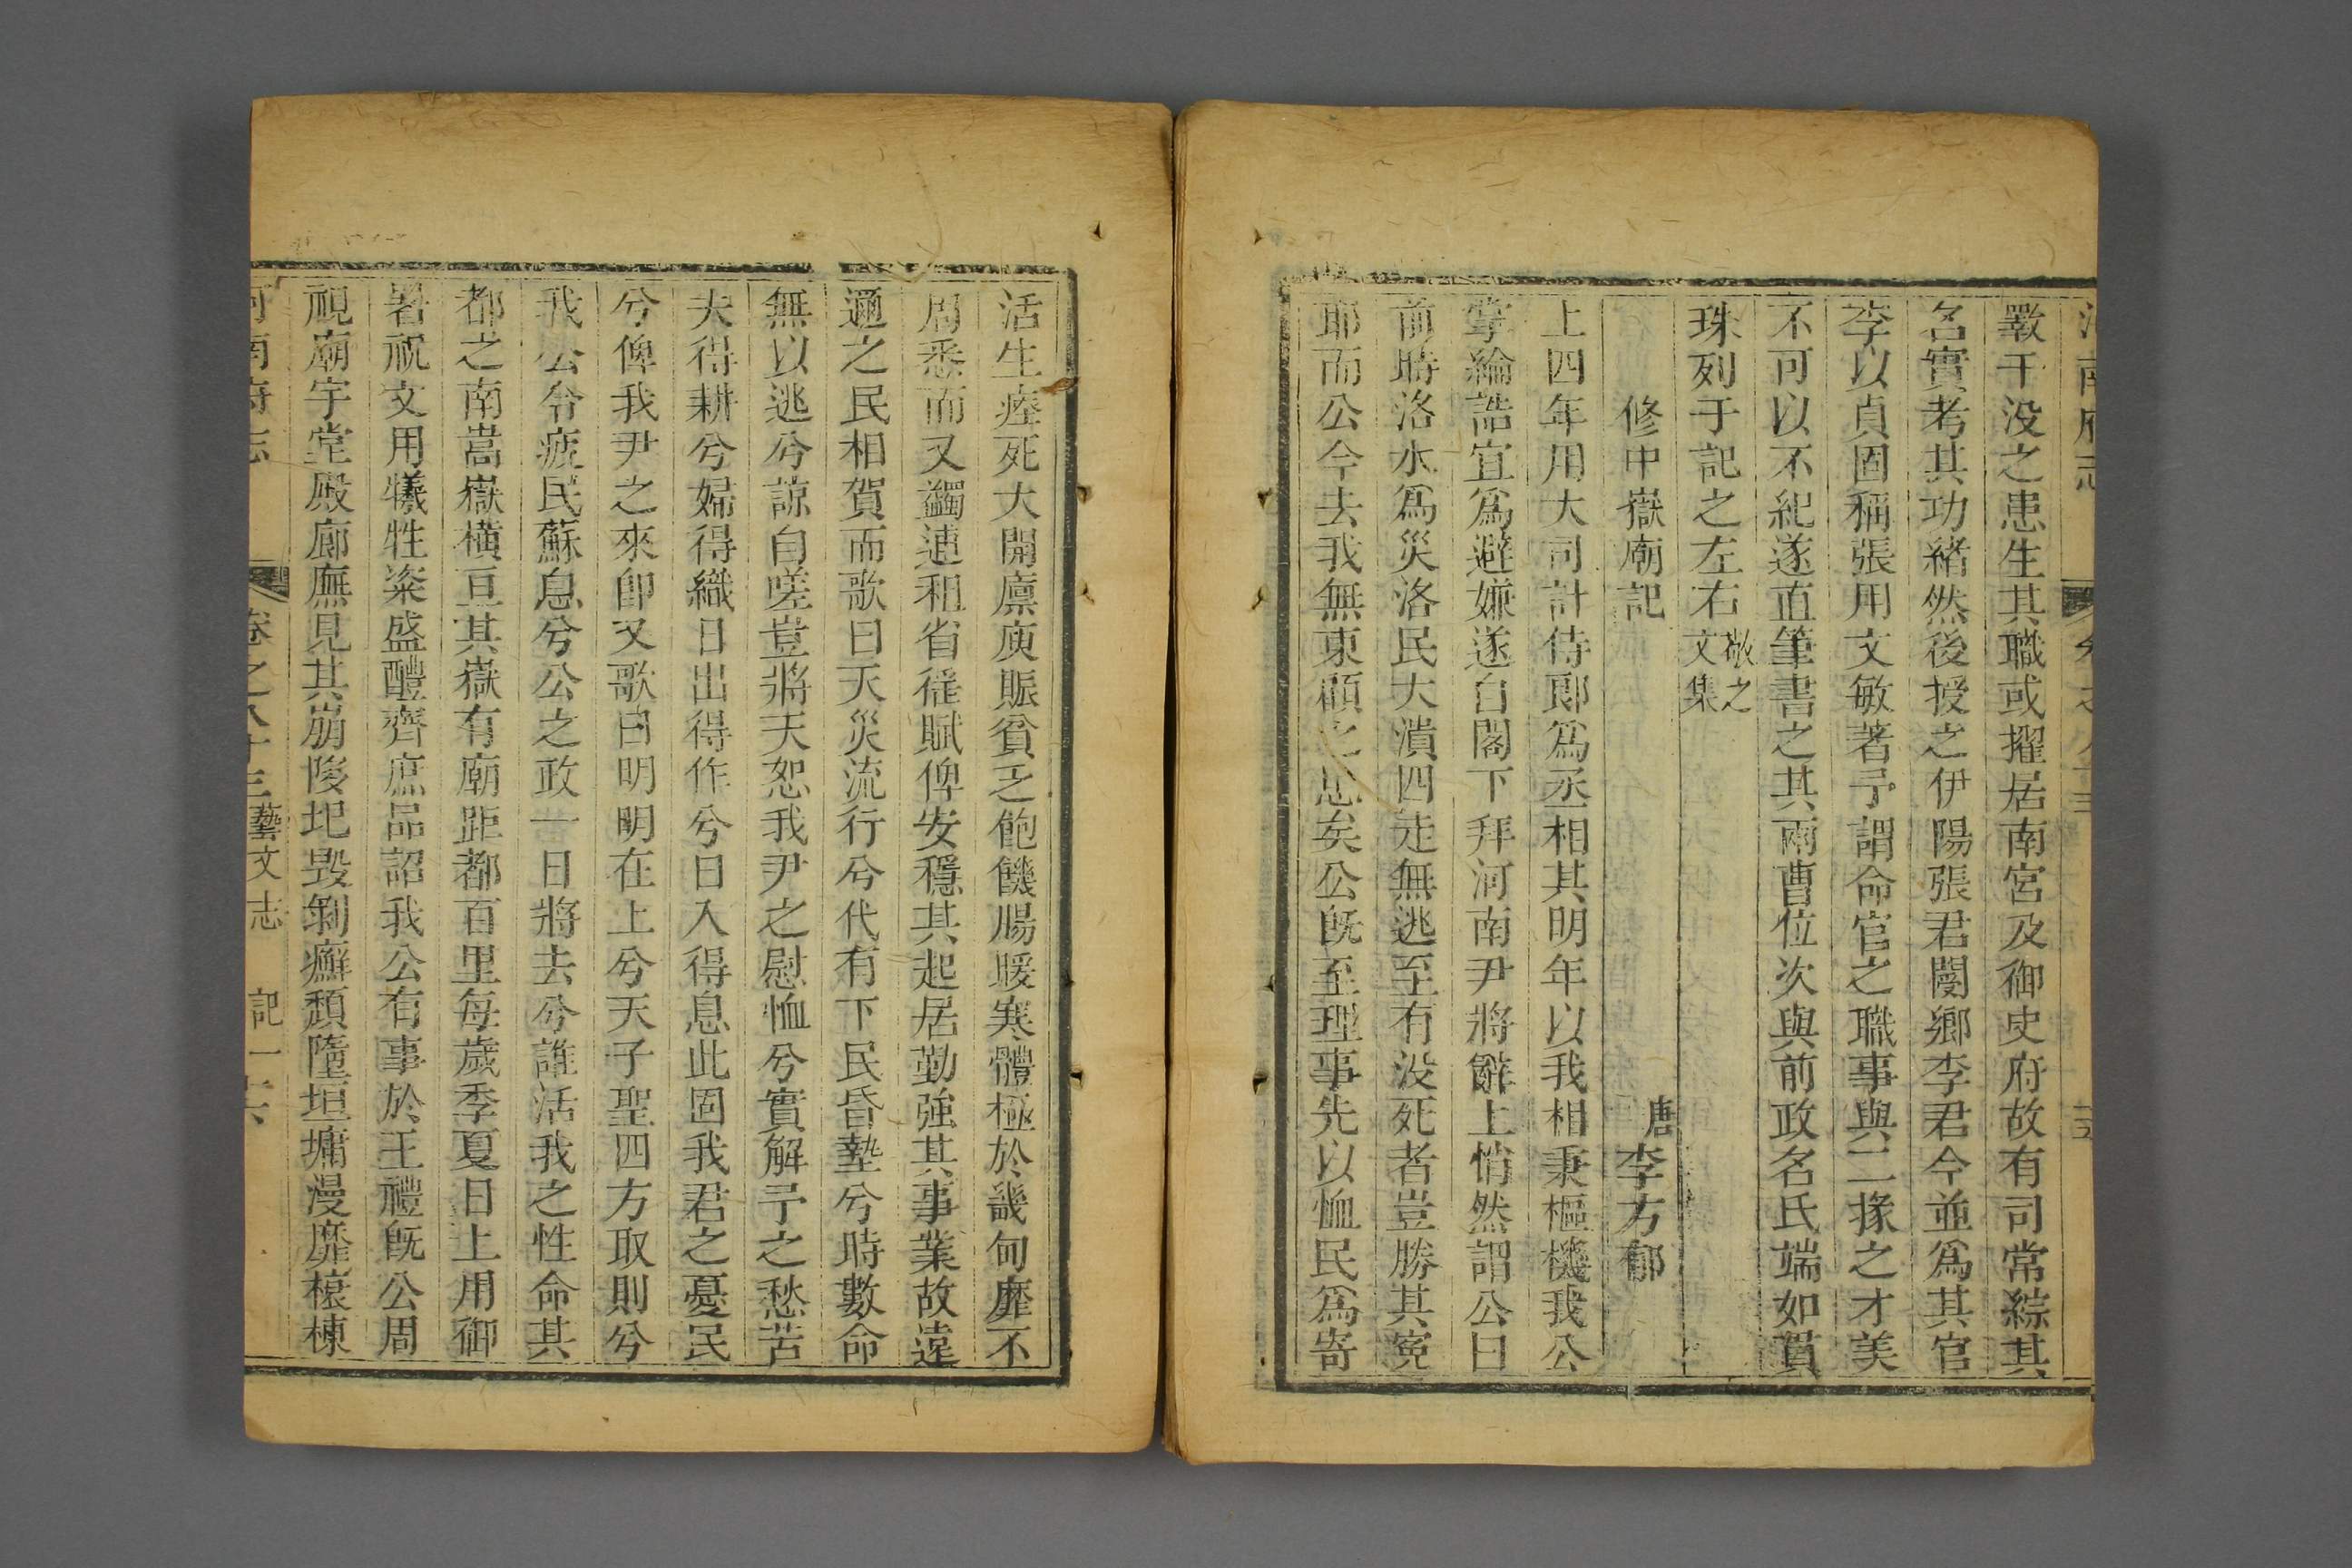 河南府志 卷之八十三 十五
斁干没之患生其職或擢居南宮及御史府故有司常綜其
名實考其功緒然後授之伊陽張君閿鄉李君今並爲其官
李以貞固稱張用文敏著予謂命官之職事與二掾之才美
不可以不紀遂直筆書之其兩曹位次與前政名氏端如貫
珠列于記之左右敬之文集
修中嶽廟記 唐李方郁
上四年用大司計侍郞爲丞相其明年以我相秉樞機我公
掌綸誥宜爲避嫌遂自閣下拜河南尹將辭上悄然謂公曰
前時洛水爲災洛民大潰四走無逃至有没死者豈勝其寃
耶而公今去我無東顧之思矣公旣至理事先以恤民爲寄
活生瘞死大開廪庾賑貧乏飽饑腸暖寒體極於畿甸靡不
周悉而又蠲逋租省徭賦俾安穩其起居勤強其事業故遠
邇之民相賀而歌曰天災流行兮代有下民昏墊兮時數命
無以逃兮諒自嗟豈將天恕我尹之慰恤兮實解予之愁苦
夫得耕兮婦得織日出得作兮日入得息此固我君之憂民
兮俾我尹之來卽又歌曰明明在上兮天子聖四方取則兮
我公令疲民蘇息兮公之政一日將去兮誰活我之性命其
都之南嵩嶽橫亘其嶽有廟距都百里每歲季夏日上用御
署祝文用犧牲粢盛醴齊庶品詔我公有事於王禮旣公周
視廟宇堂殿廊廡見其崩㥄圯毀剝癬頹隳垣墉漫靡榱棟
河南府志 卷之八十三藝文志 記一 十六